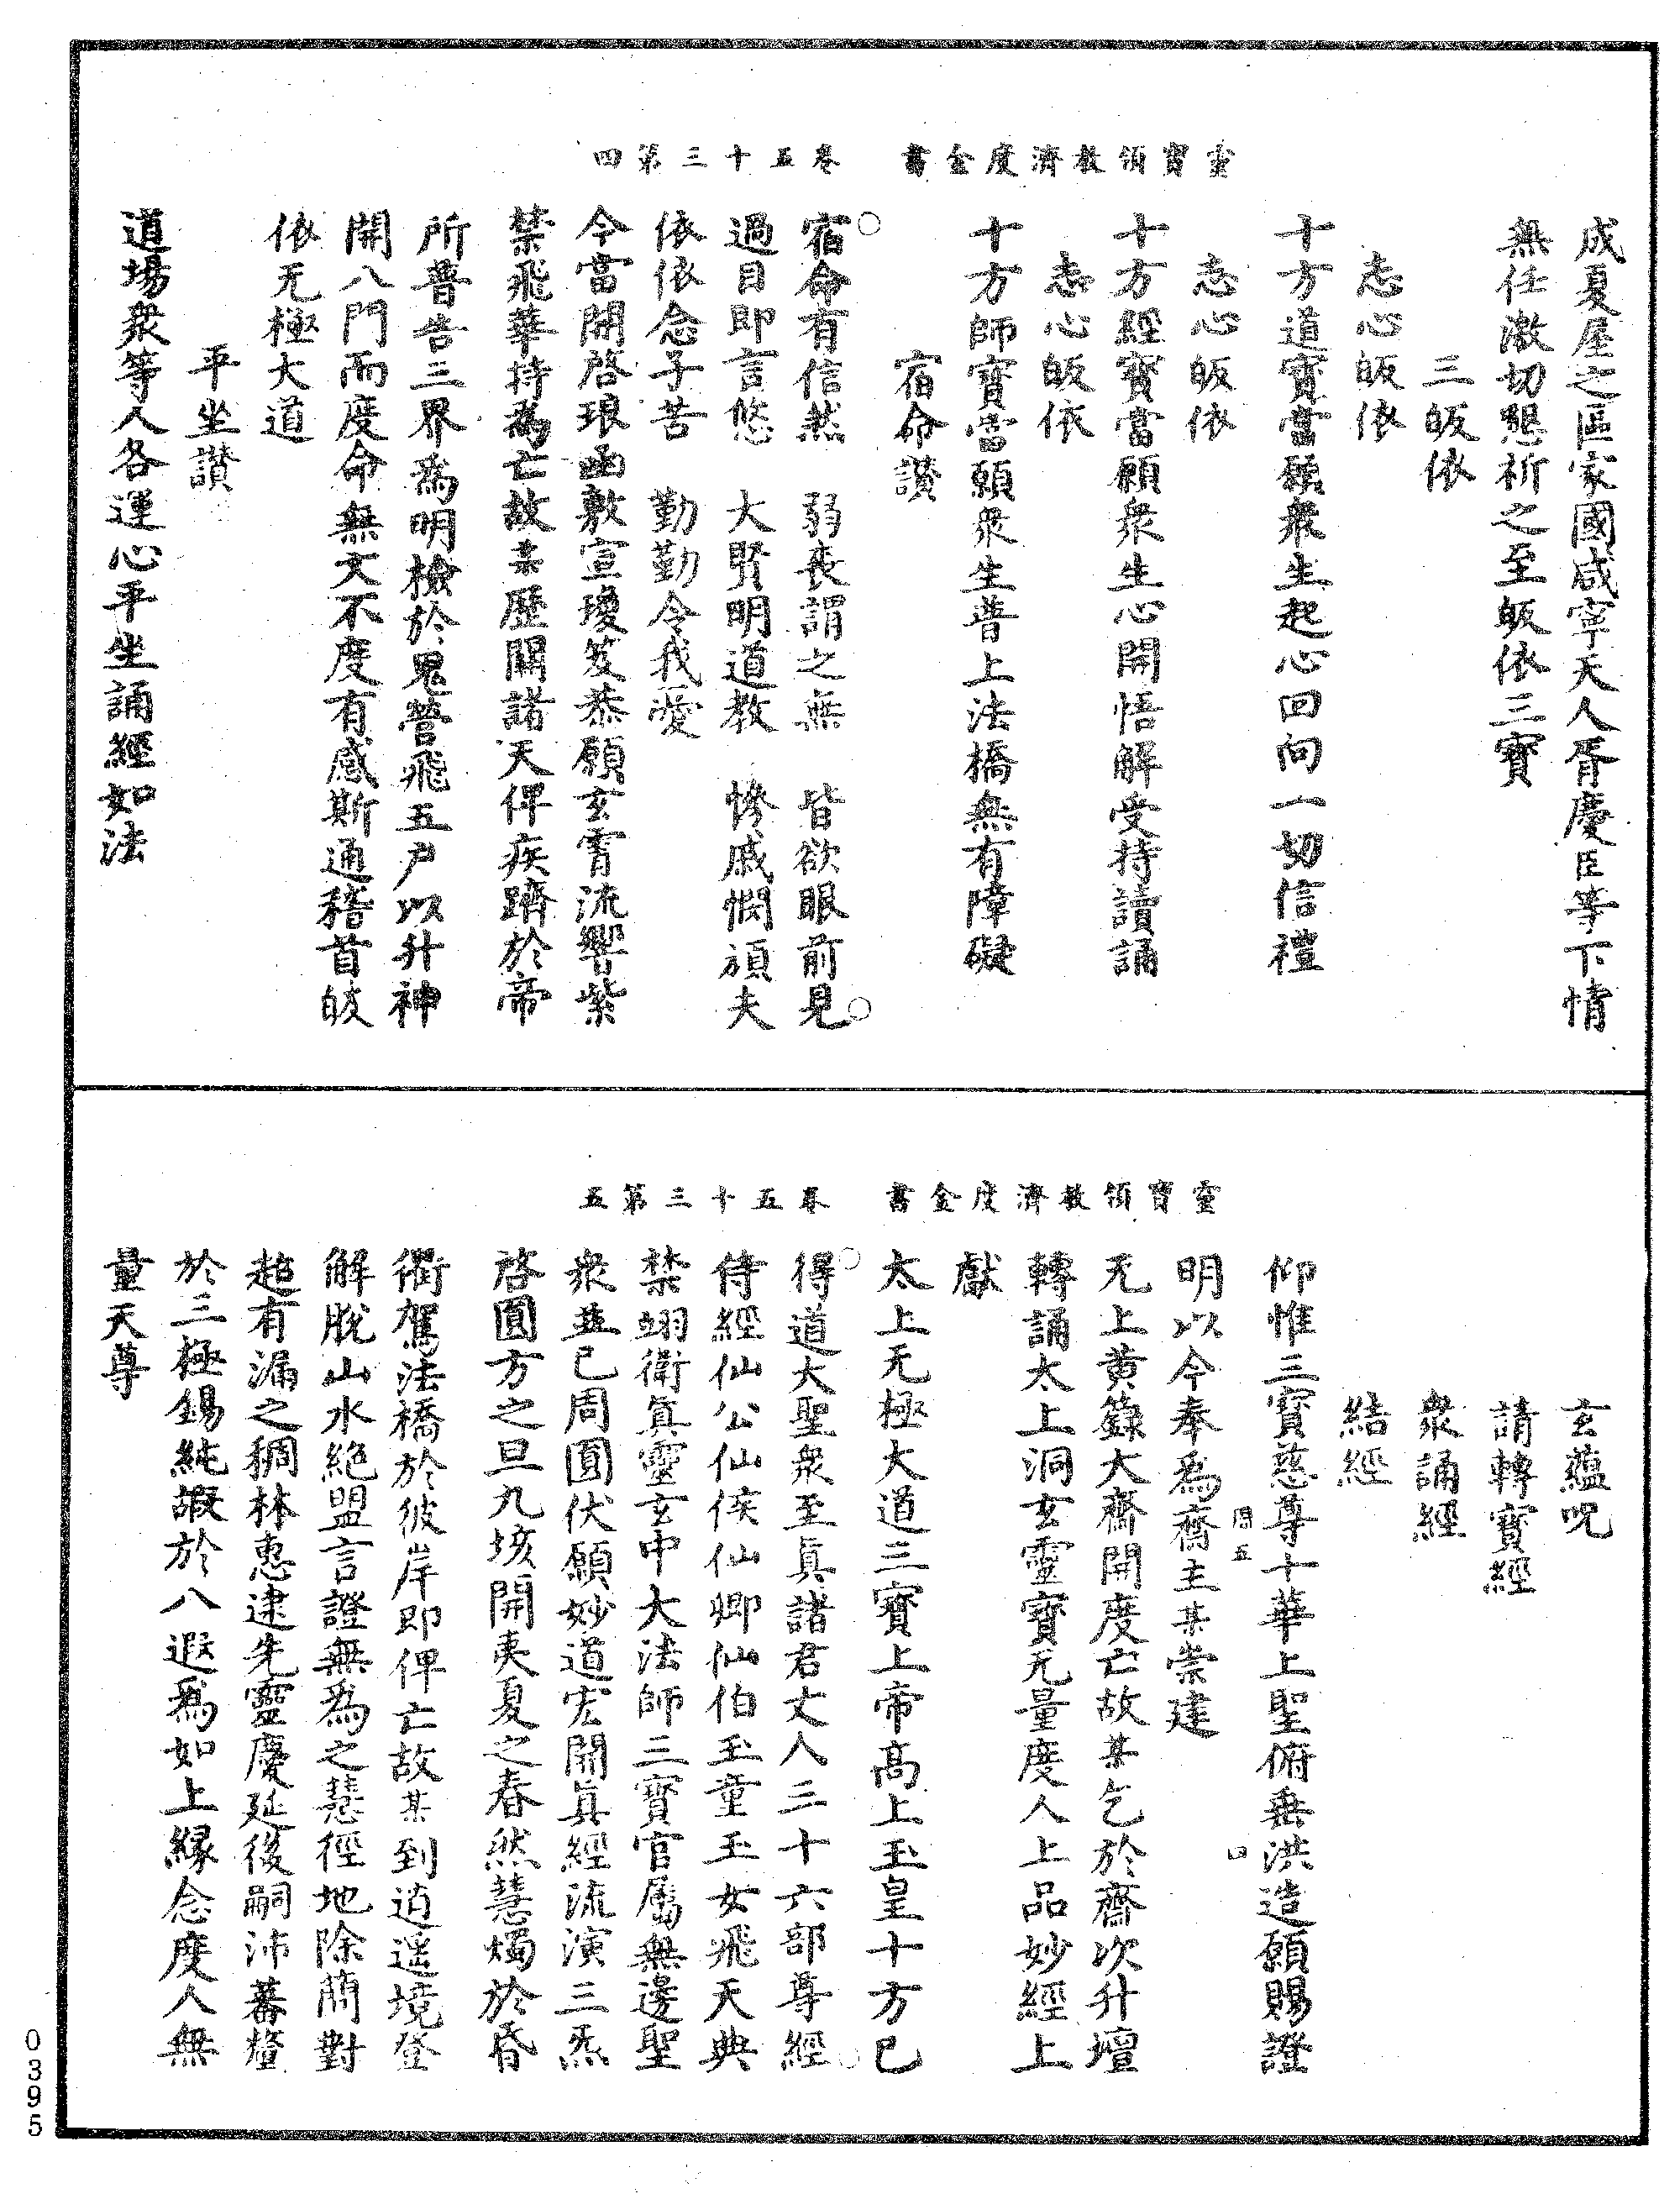 成夏屋之區家國咸寧天人胥慶臣等下情
無任激切懇祈之至皈依三寶
三皈依
志心皈依
十方道寶當願衆生起心回向一切信禮
志心皈依
十方經寶當願衆生心開悟解受持讀誦
志心皈依
十方師寶當願衆生普上法橋無有障礙
宿命讃
靈寶領教濟度金書　卷五十三第四
宿命有信然　弱喪謂之無　皆欲眼前見
過目即言悠　大賢明道教　慘戚憫頑夫
依依念子苦　勤勤令我憂
今當開啓琅函敷宣瓊笈恭願玄霄流響紫
禁飛華持為亡故某歷關諸天俾疾躋於帝
所普告三界為明檢於鬼營飛五户以升神
開八門而度命無文不度有感斯通稽首皈
依无極大道
平坐讃
道場衆等人各運心平坐誦經如法
玄蘊呪
請轉寶經
衆誦經
結經
仰惟三寶慈尊十華上聖俯垂洪造願賜證
周五
明以今奉爲齋主某崇建
无上黄籙大齋開度亡故某乞於齋次升壇
轉誦太上洞玄靈寶无量度人上品妙經上
獻
太上无極大道三寶上帝高上玉皇十方已
靈寶領教濟度金書　卷五十三第五
得道大聖衆至眞諸君丈人三十六部尊經
侍經仙公仙侯仙卿仙伯玉童玉女飛天典
禁翊衛眞靈玄中大法師三寶官屬無邊聖
衆並已周圓伏願妙道宏開眞經流演三炁
啓圓方之旦九垓開夷夏之春然慧燭於昏
衢駕法橋於彼岸即俾亡故某到逍遥境登
解脫山水絶盟言證無爲之慧徑地除蕳對
超有漏之稠林惠逮先靈慶延後嗣沛蕃釐
於三極錫純嘏於八遐爲如上縁念度人無
量天尊
0395